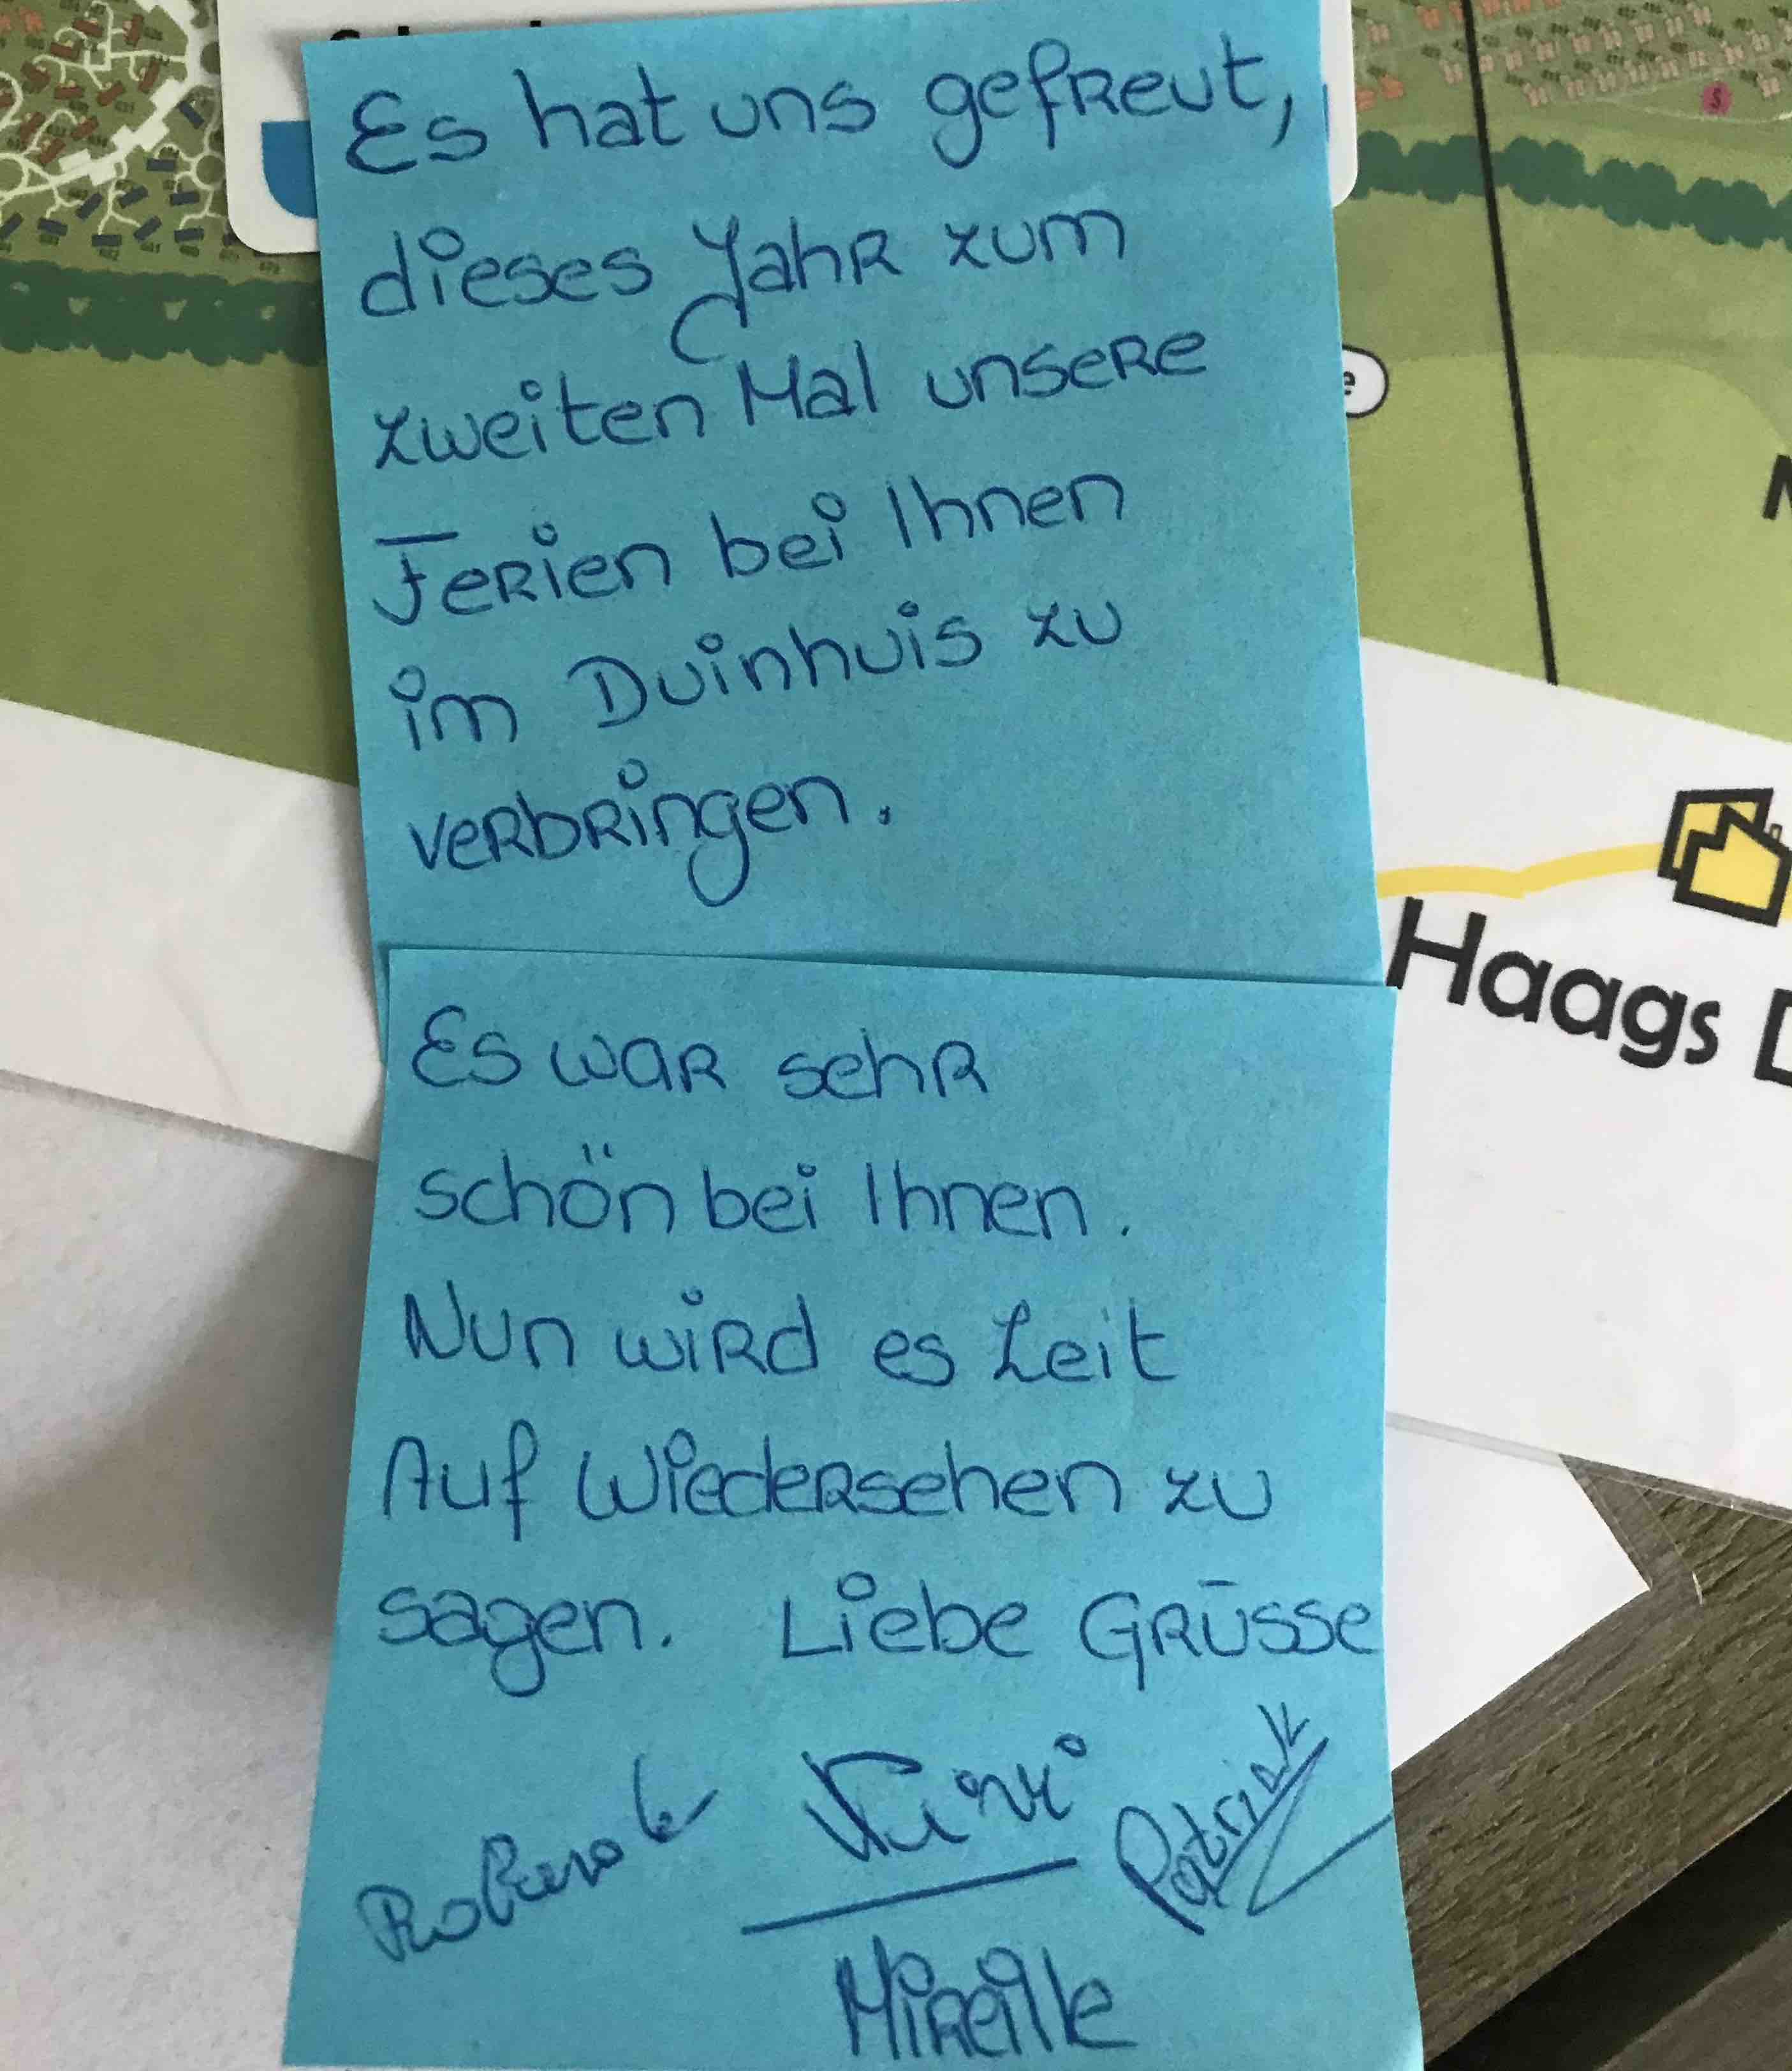 Es hat uns gefreut,
dieses Jahr zum
zweiten Mal unsere
Ferien bei Ihnen
im Duinhuis zu
verbringen.
Es war sehr
schön bei Ihnen.
Nun wird es Zeit
Auf Wiedersehen zu
sagen. Liebe Grüsse
Patrick
Mireille
Haags